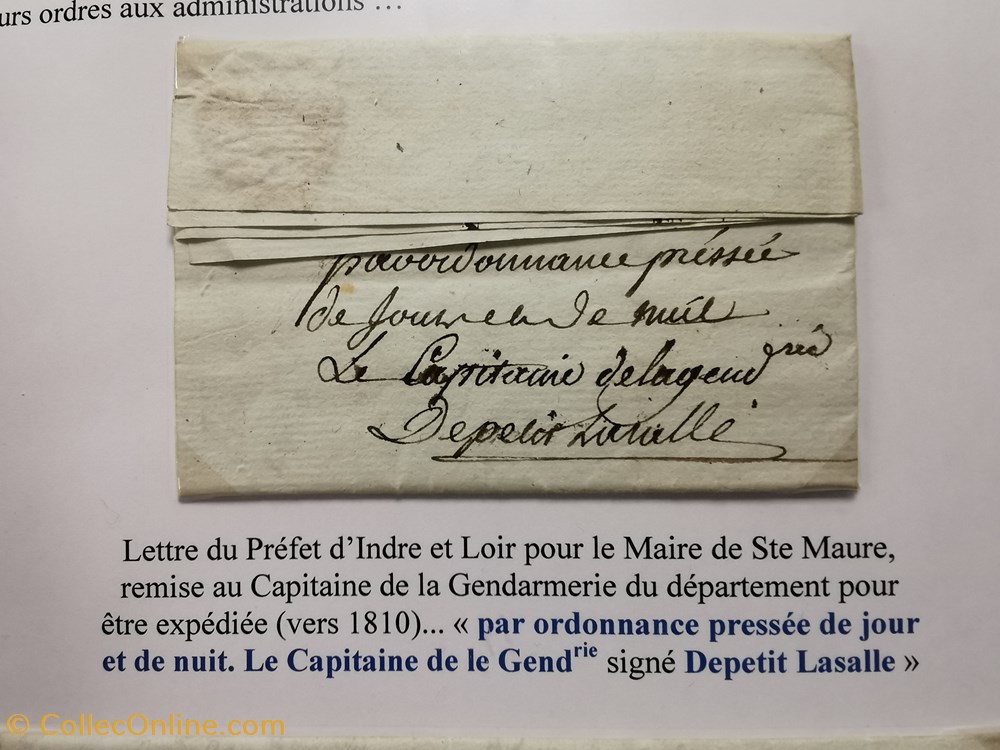 urs ordres aux administrations …
par ordonnance préssée
de Jour et de nuit
Le Capitaine de la gend rie
Depetit Lasalle
Lettre du Préfet d’Indre et Loir pour le Maire de Ste Maure,
remise au Capitaine de la Gendarmerie du département pour
être expédiée (vers 1810)... « par ordonnance pressée de jour
et de nuit. Le Capitaine de le Gendrie signé Depetit Lasalle »
© CollecOnline.com